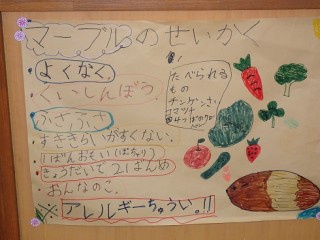 マーブルのせいかく
・よくなく。
・くいしんぼう。
・ふさふさ
・すききらいがすくない。
・1ばんおそい(ばちゅり)
・きょうだいで21ばんめ
・おんなのこ。
アレルギーちゅうい。!!
たべられる
もの
チンゲンさい
コマツナ